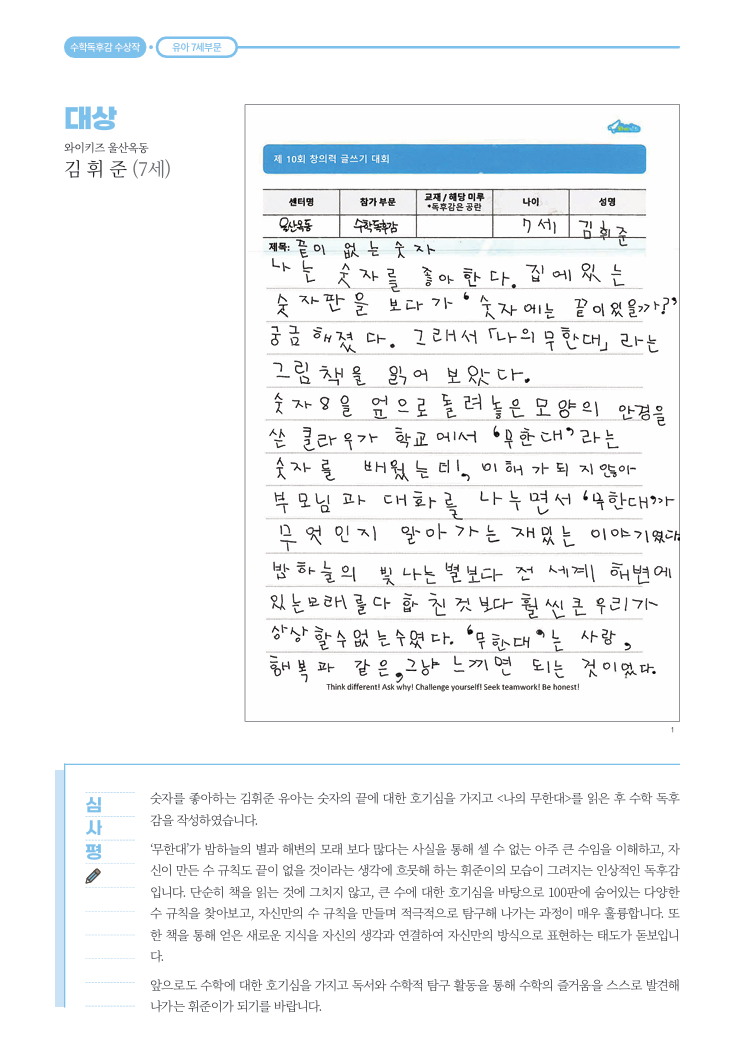 수학독후감 수상작 • 유아 7세부문
대상
와이키즈 울산옥동
김 휘 준 (7세)
제 10회 창의력 글쓰기 대회
센터명 참가 부문 교재 / 해당 미루 *독후감은 공란 나이 성명
울산옥동 수학독후감 7세 김휘준
제목: 끝이 없는 숫자
나는 숫자를 좋아한다. 집에 있는
숫자판을 보다가 ‘숫자에는 끝이 있을까?’
궁금해졌다. 그래서 「나의 무한대」 라는
그림책을 읽어 보았다.
숫자 8을 옆으로 돌려놓은 모양의 안경을
쓴 클라우가 학교에서 ‘무한대’라는
숫자를 배웠는데, 이해가 되지 않아
부모님과 대화를 나누면서 ‘무한대’가
무엇인지 알아가는 재밌는 이야기였다.
밤하늘의 빛나는 별보다 전 세계 해변에
있는 모래를 다 합친 것보다 훨씬 큰 우리가
상상할 수 없는 수였다. ‘무한대’는 사랑,
행복과 같은, 그냥 느끼면 되는 것이였다.
Think different! Ask why! Challenge yourself! Seek teamwork! Be honest!
1
심사평
숫자를 좋아하는 김휘준 유아는 숫자의 끝에 대한 호기심을 가지고 <나의 무한대>를 읽은 후 수학 독후
감을 작성하였습니다.
‘무한대’가 밤하늘의 별과 해변의 모래 보다 많다는 사실을 통해 셀 수 없는 아주 큰 수임을 이해하고, 자
신이 만든 수 규칙도 끝이 없을 것이라는 생각에 흐뭇해 하는 휘준이의 모습이 그려지는 인상적인 독후감
입니다. 단순히 책을 읽는 것에 그치지 않고, 큰 수에 대한 호기심을 바탕으로 100판에 숨어있는 다양한
수 규칙을 찾아보고, 자신만의 수 규칙을 만들며 적극적으로 탐구해 나가는 과정이 매우 훌륭합니다. 또
한 책을 통해 얻은 새로운 지식을 자신의 생각과 연결하여 자신만의 방식으로 표현하는 태도가 돋보입니
다.
앞으로도 수학에 대한 호기심을 가지고 독서와 수학적 탐구 활동을 통해 수학의 즐거움을 스스로 발견해
나가는 휘준이가 되기를 바랍니다.